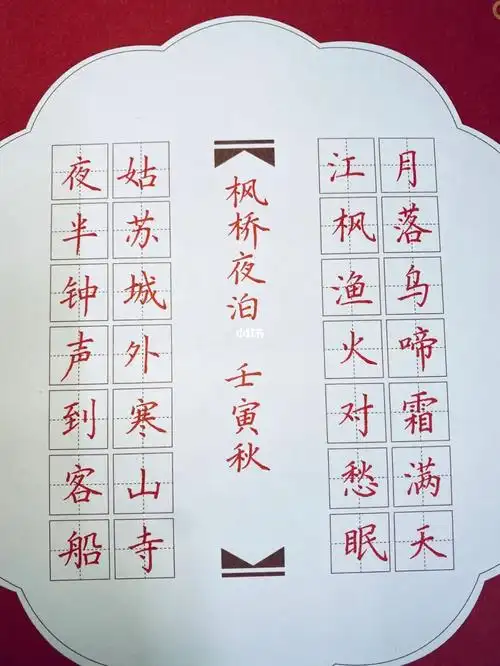 月落鸟啼霜满天
江枫渔火对愁眠
枫桥夜泊 壬寅秋
小红书
姑苏城外寒山寺
夜半钟声到客船